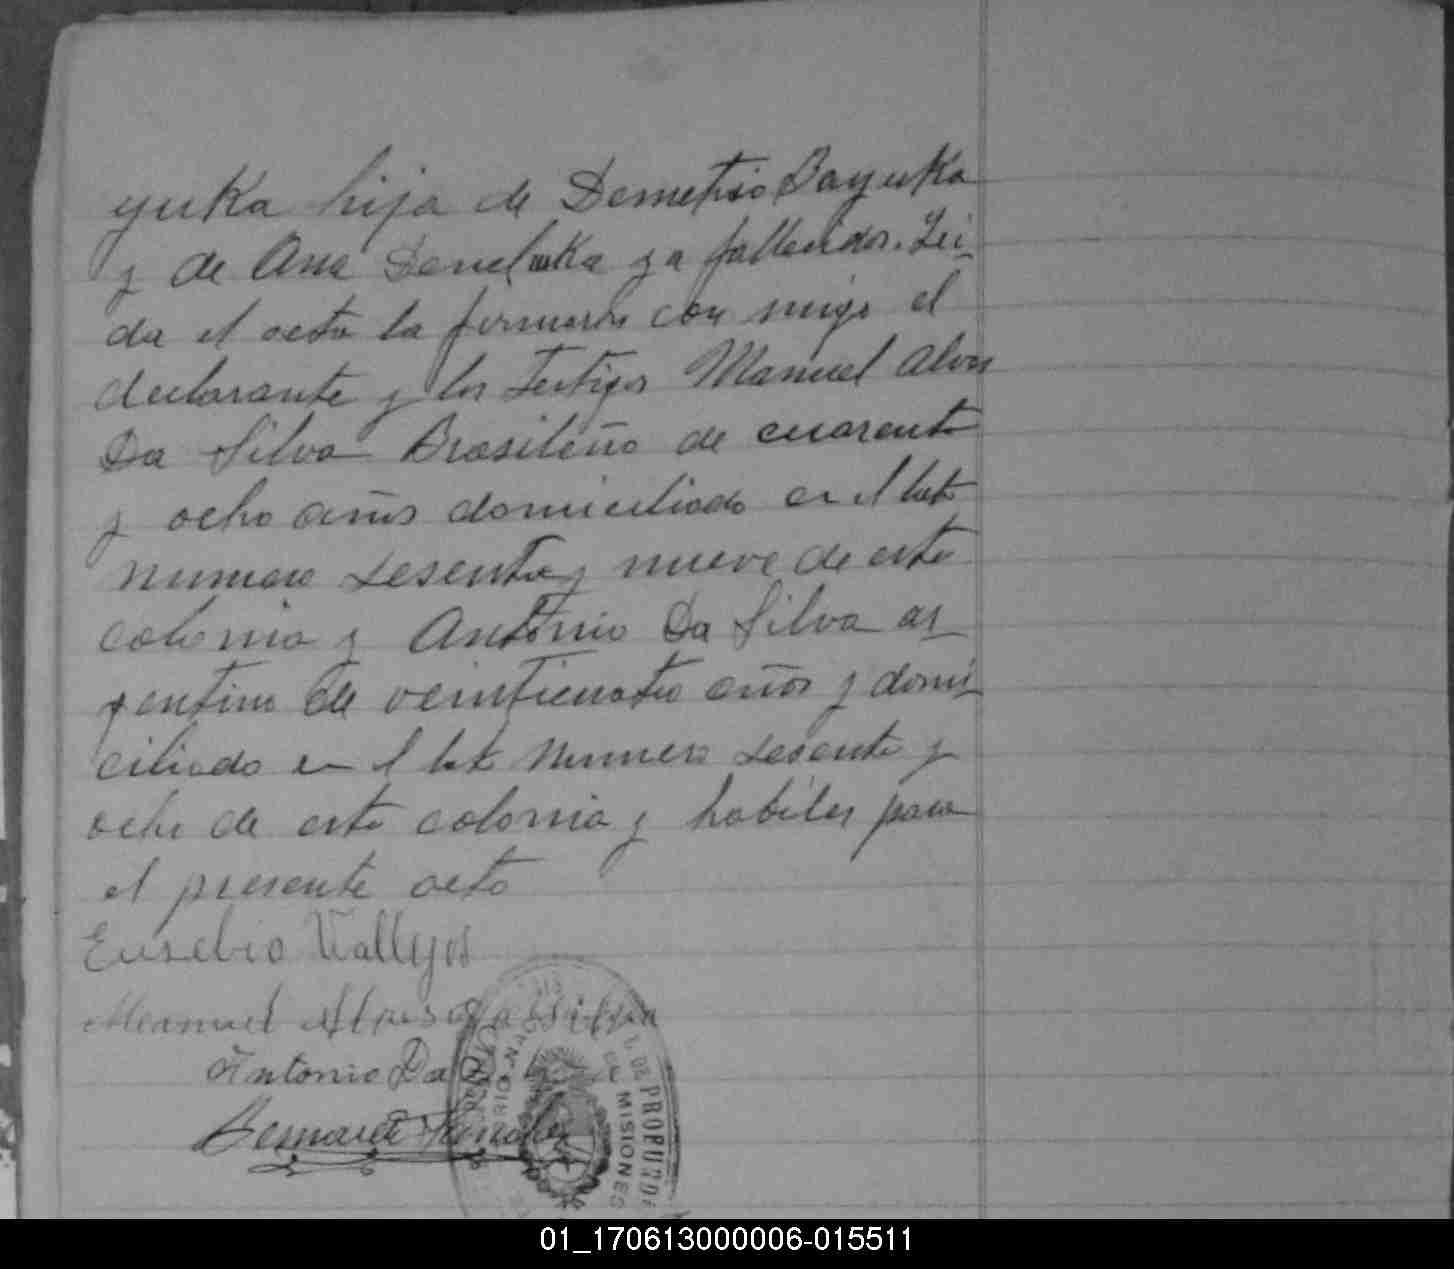 yuka hija de Demetrio Bayuka
y de Ana ya fallecidos. Lei
da el acta la firmaron con migo el
declarante y los testigos Manuel Alves
Da Silva Brasileño de cuarenta
y ocho años domiciliado en el lote
numero sesenta y nueve de esta
colonia y Antonio Da Silva ar
gentino de veinticuatro años y domi
ciliado en el lote numero sesenta y
ocho de esta colonia y habiles para
el presente acto
Eusebio Vallejos
Manuel Alves da Silva
Antonio Da
DE MISIONES
01_170613000006-015511